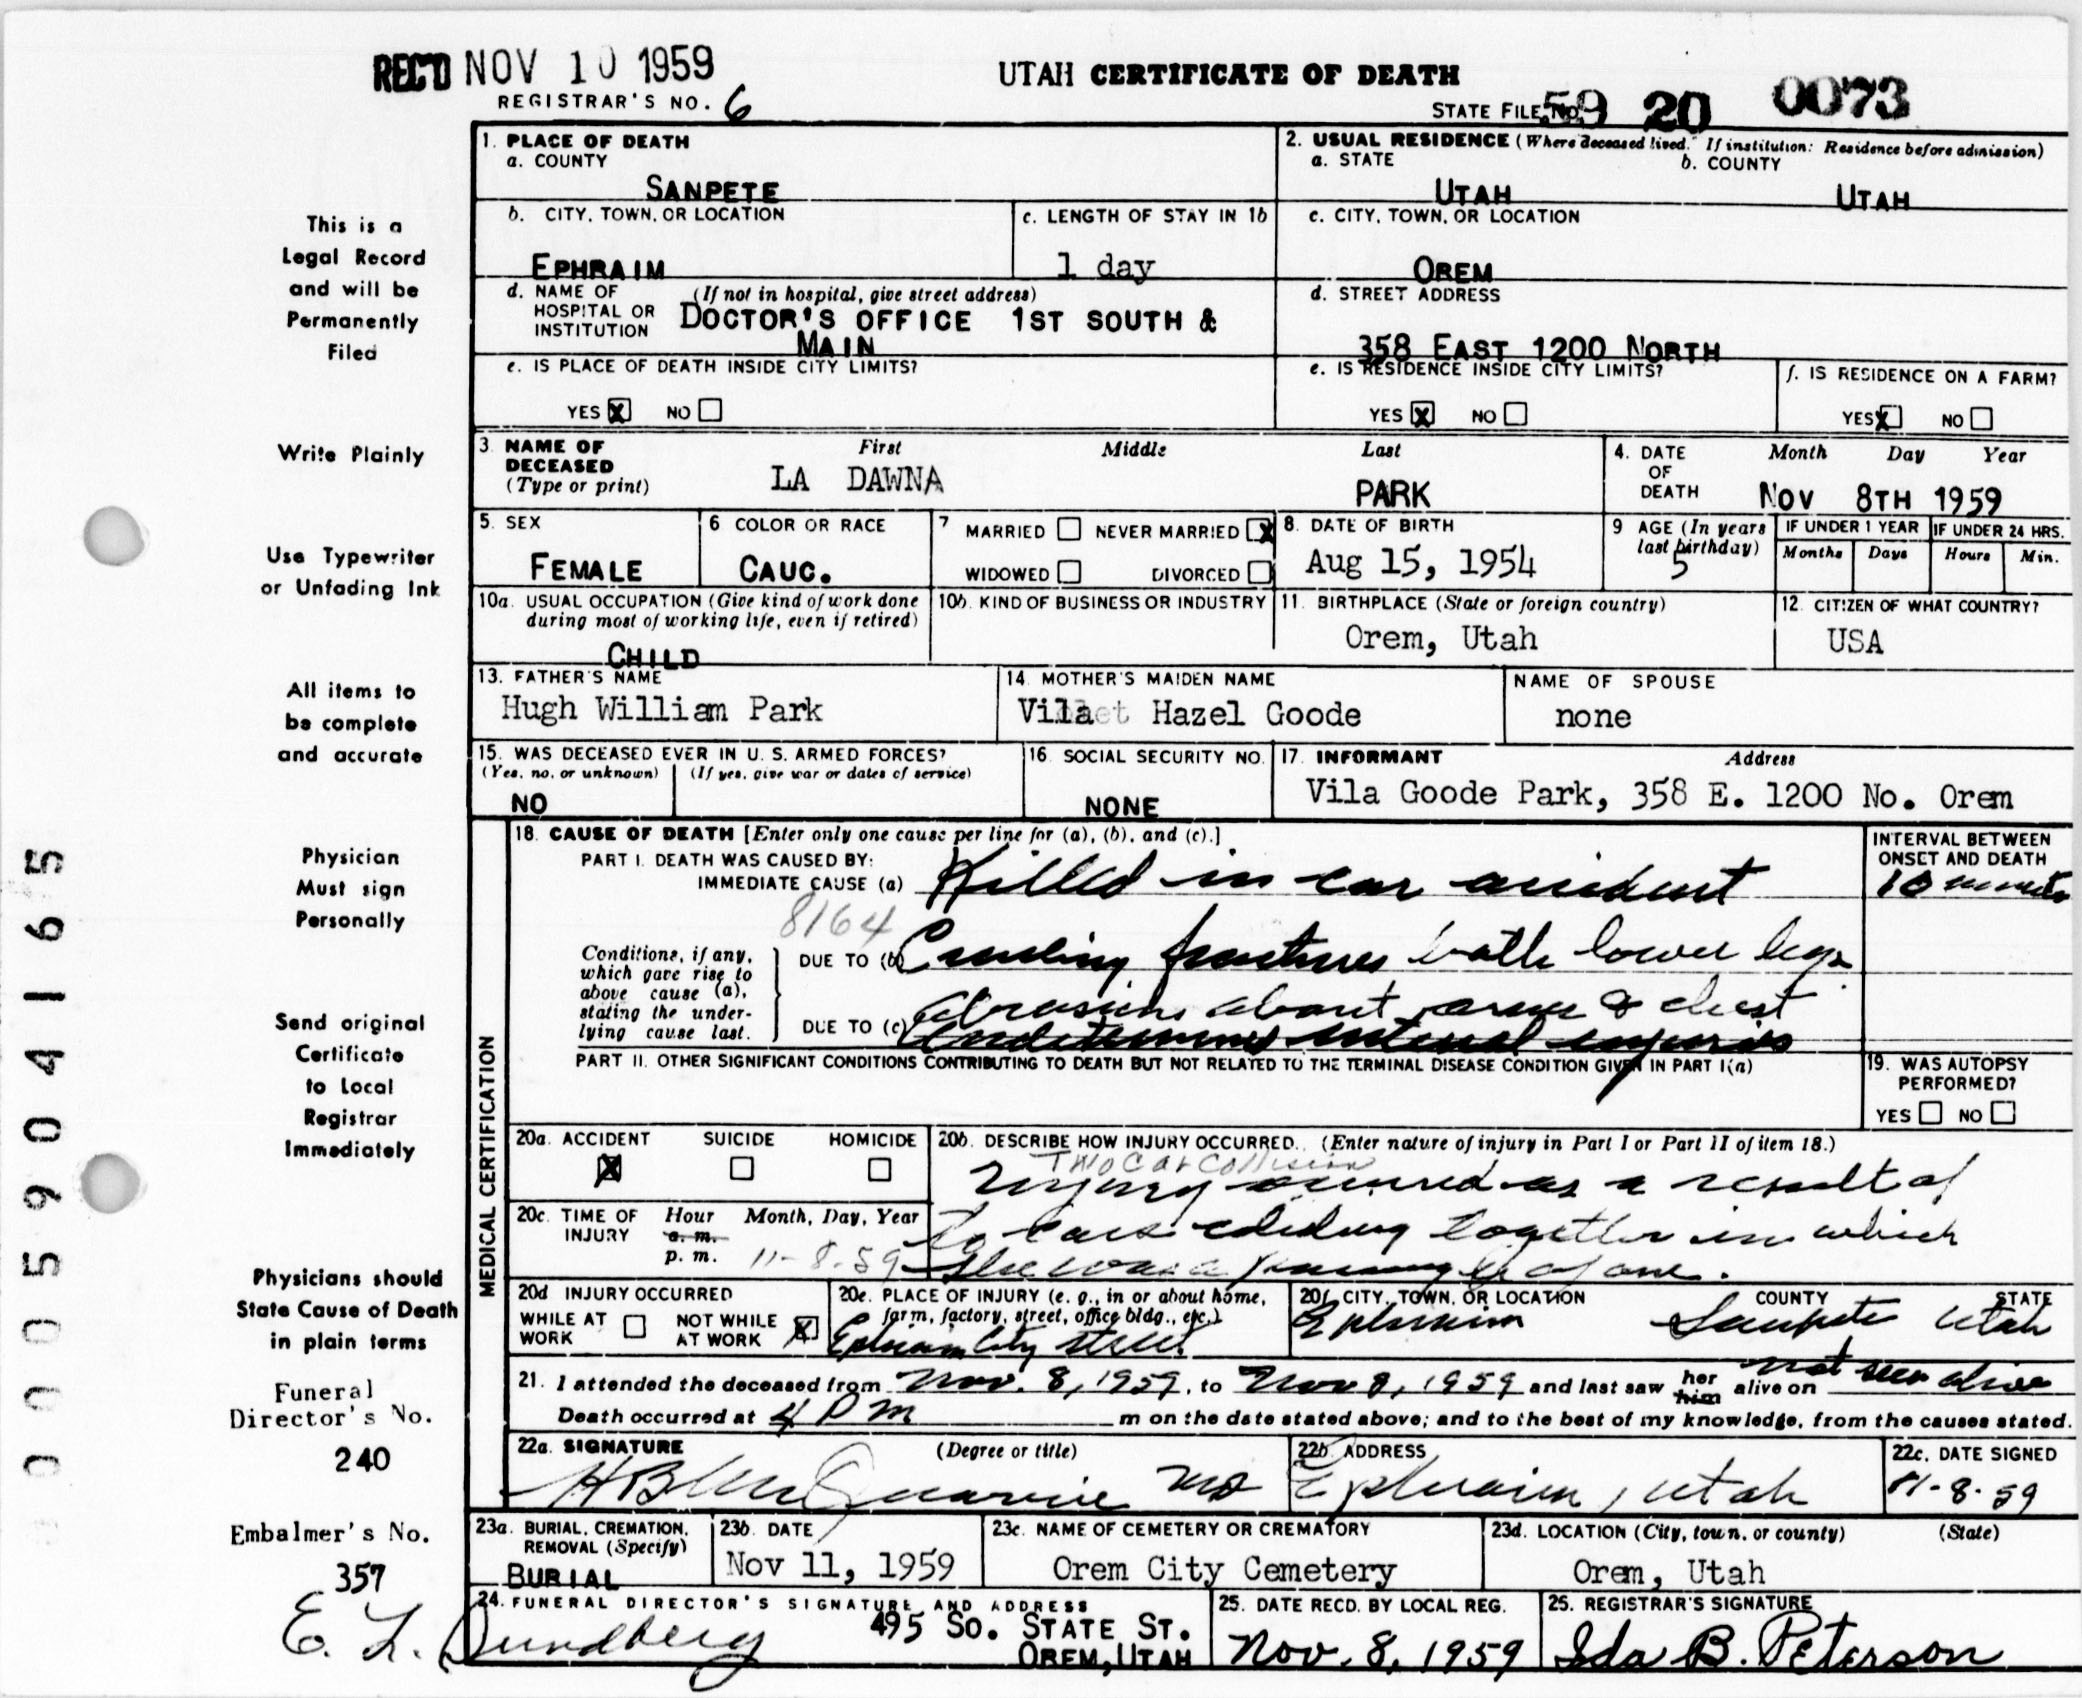 REC'D NOV 10 1959
REGISTRAR'S NO. 6
UTAH CERTIFICATE OF DEATH
STATE FILE NO. 59 20 0073
This is a
Legal Record
and will be
Permanently
Filed
Write Plainly
Use Typewriter
or Unfading Ink
All items to
be complete
and accurate
Physician
Must sign
Personally
Send original
Certificate
to Local
Registrar
Immediately
Physicians should
State Cause of Death
in plain terms
Funeral
Director's No.
240
Embalmer's No.
357
0005904165
1. PLACE OF DEATH
a. COUNTY
SANPETE
b. CITY, TOWN, OR LOCATION
EPHRAIM
c. LENGTH OF STAY IN 1b
1 day
d. NAME OF HOSPITAL OR INSTITUTION (If not in hospital, give street address)
DOCTOR'S OFFICE 1ST SOUTH &
MAIN
e. IS PLACE OF DEATH INSIDE CITY LIMITS?
YES X NO
2. USUAL RESIDENCE (Where deceased lived. If institution: Residence before admission)
a. STATE
UTAH
b. COUNTY
UTAH
c. CITY, TOWN, OR LOCATION
OREM
d. STREET ADDRESS
358 EAST 1200 NORTH
e. IS RESIDENCE INSIDE CITY LIMITS?
YES X NO
f. IS RESIDENCE ON A FARM?
YES X NO
3. NAME OF DECEASED (Type or print)
First Middle Last
LA DAWNA PARK
4. DATE OF DEATH
Month Day Year
NOV 8TH 1959
5. SEX
FEMALE
6 COLOR OR RACE
CAUC.
7 MARRIED NEVER MARRIED X
WIDOWED DIVORCED
8. DATE OF BIRTH
Aug 15, 1954
9 AGE (In years last birthday)
5
IF UNDER 1 YEAR
Months Days
IF UNDER 24 HRS.
Hours Min.
10a. USUAL OCCUPATION (Give kind of work done during most of working life, even if retired)
CHILD
10b. KIND OF BUSINESS OR INDUSTRY
11. BIRTHPLACE (State or foreign country)
Orem, Utah
12. CITIZEN OF WHAT COUNTRY?
USA
13. FATHER'S NAME
Hugh William Park
14. MOTHER'S MAIDEN NAME
Vila Hazel Goode
NAME OF SPOUSE
none
15. WAS DECEASED EVER IN U. S. ARMED FORCES?
(Yes, no, or unknown) (If yes, give war or dates of service)
NO
16. SOCIAL SECURITY NO.
NONE
17. INFORMANT Address
Vila Goode Park, 358 E. 1200 No. Orem
MEDICAL CERTIFICATION
18. CAUSE OF DEATH [Enter only one cause per line for (a), (b), and (c).]
PART I. DEATH WAS CAUSED BY:
IMMEDIATE CAUSE (a) Killed in car accident
INTERVAL BETWEEN ONSET AND DEATH
10 minutes
8164
Conditions, if any, which gave rise to above cause (a), stating the underlying cause last.
DUE TO (b) Crushing fractures both lower legs
abrasions about arms & chest
DUE TO (c) Undetermined internal injuries
PART II. OTHER SIGNIFICANT CONDITIONS CONTRIBUTING TO DEATH BUT NOT RELATED TO THE TERMINAL DISEASE CONDITION GIVEN IN PART I(a)
19. WAS AUTOPSY PERFORMED?
YES NO
20a. ACCIDENT SUICIDE HOMICIDE
X
20b. DESCRIBE HOW INJURY OCCURRED. (Enter nature of injury in Part I or Part II of item 18.)
Two Car Collision
Injury occurred as a result of
to cars colliding together in which
she was a passenger of one.
20c. TIME OF INJURY Hour Month, Day, Year
a. m.
p. m. 11-8-59
20d INJURY OCCURRED
WHILE AT WORK NOT WHILE AT WORK X
20e. PLACE OF INJURY (e. g., in or about home, farm, factory, street, office bldg., etc.)
Ephraim City Street
20f. CITY, TOWN, OR LOCATION COUNTY STATE
Ephraim Sanpete Utah
21. I attended the deceased from Nov. 8, 1959, to Nov 8, 1959 and last saw her him alive on not seen alive
Death occurred at 4 PM m on the date stated above; and to the best of my knowledge, from the causes stated.
22a. SIGNATURE (Degree or title)
H B McQuarrie MD
22b. ADDRESS
Ephraim, Utah
22c. DATE SIGNED
11-8-59
23a. BURIAL, CREMATION, REMOVAL (Specify)
BURIAL
23b. DATE
Nov 11, 1959
23c. NAME OF CEMETERY OR CREMATORY
Orem City Cemetery
23d. LOCATION (City, town, or county) (State)
Orem, Utah
24. FUNERAL DIRECTOR'S SIGNATURE AND ADDRESS
E. L. Sundberg
495 SO. STATE ST.
OREM, UTAH
25. DATE RECD. BY LOCAL REG.
Nov. 8, 1959
25. REGISTRAR'S SIGNATURE
Ida B. Peterson